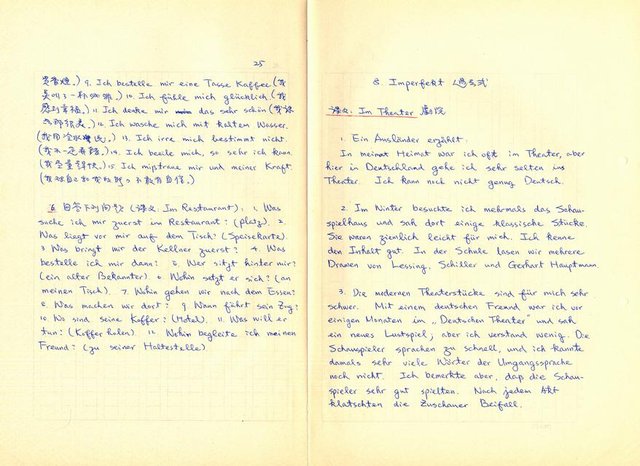 25
9. Ich bestelle mir eine Tasse Kaffee (我
10. Ich fühle mich glücklich (我
11. Ich denke mir das sehr schön (我
12. Ich wasche mich mit kaltem Wasser.
(我用冷水洗.) 13. Ich irre mich bestimmt nicht
14. Ich beeile mich, so sehr ich kann
15. Ich mißtraue mir und meiner Kraft.
6. 回答下列问句 (课文: Im Restaurant): 1. Was
suche ich mir zuerst im Restaurant? (Platz). 2.
Was liegt vor mir auf dem Tisch? (Speisekarte).
3. Was bringt mir der Kellner zuerst? 4. Was
bestelle ich mir dann? 5. Wer sitzt hinter mir?
(ein alter Bekannter). 6. Wohin setzt er sich? (an
meinen Tisch). 7. Wohin gehen wir nach dem Essen?
8. Was machen wir dort? 9. Wann fährt sein Zug?
10. Wo sind seine Koffer? (Hotel). 11. Was will er
tun? (Koffer holen). 12. Wohin begleite ich meinen
Freund? (zu seiner Haltestelle)
8. Imperfekt (过去式
课文: Im Theater 剧院
1. Ein Ausländer erzählt.
In meinet Heimat war ich oft im Theater, aber
hier in Deutschland gehe ich sehr selten ins
Theater. Ich kann noch nicht genug Deutsch.
2. Im Winter besuchte ich mehrmals das Schau-
spielhaus und sah dort einige klassische Stücke.
Sie waren ziemlich leicht für mich. Ich kenne
den Inhalt gut. In der Schule lasen wir mehrere
Dramen von Lessing, Schiller und Gerhart Hauptmann.
3. Die modernen Theaterstücke sind für mich sehr
schwer. Mit einem deutschen Freund war ich vor
einigen Monaten im „Deutschen Theater" und sah
ein neues Lustspiel, aber ich verstand wenig. Die
Schauspieler sprachen zu schnell, und ich kannte
damals sehr viele Wörter der Umgangssprache
noch nicht. Ich bemerkte aber, daß die Schau-
spieler sehr gut spielten. Nach jedem Akt
klatschten die Zuschauer Beifall.